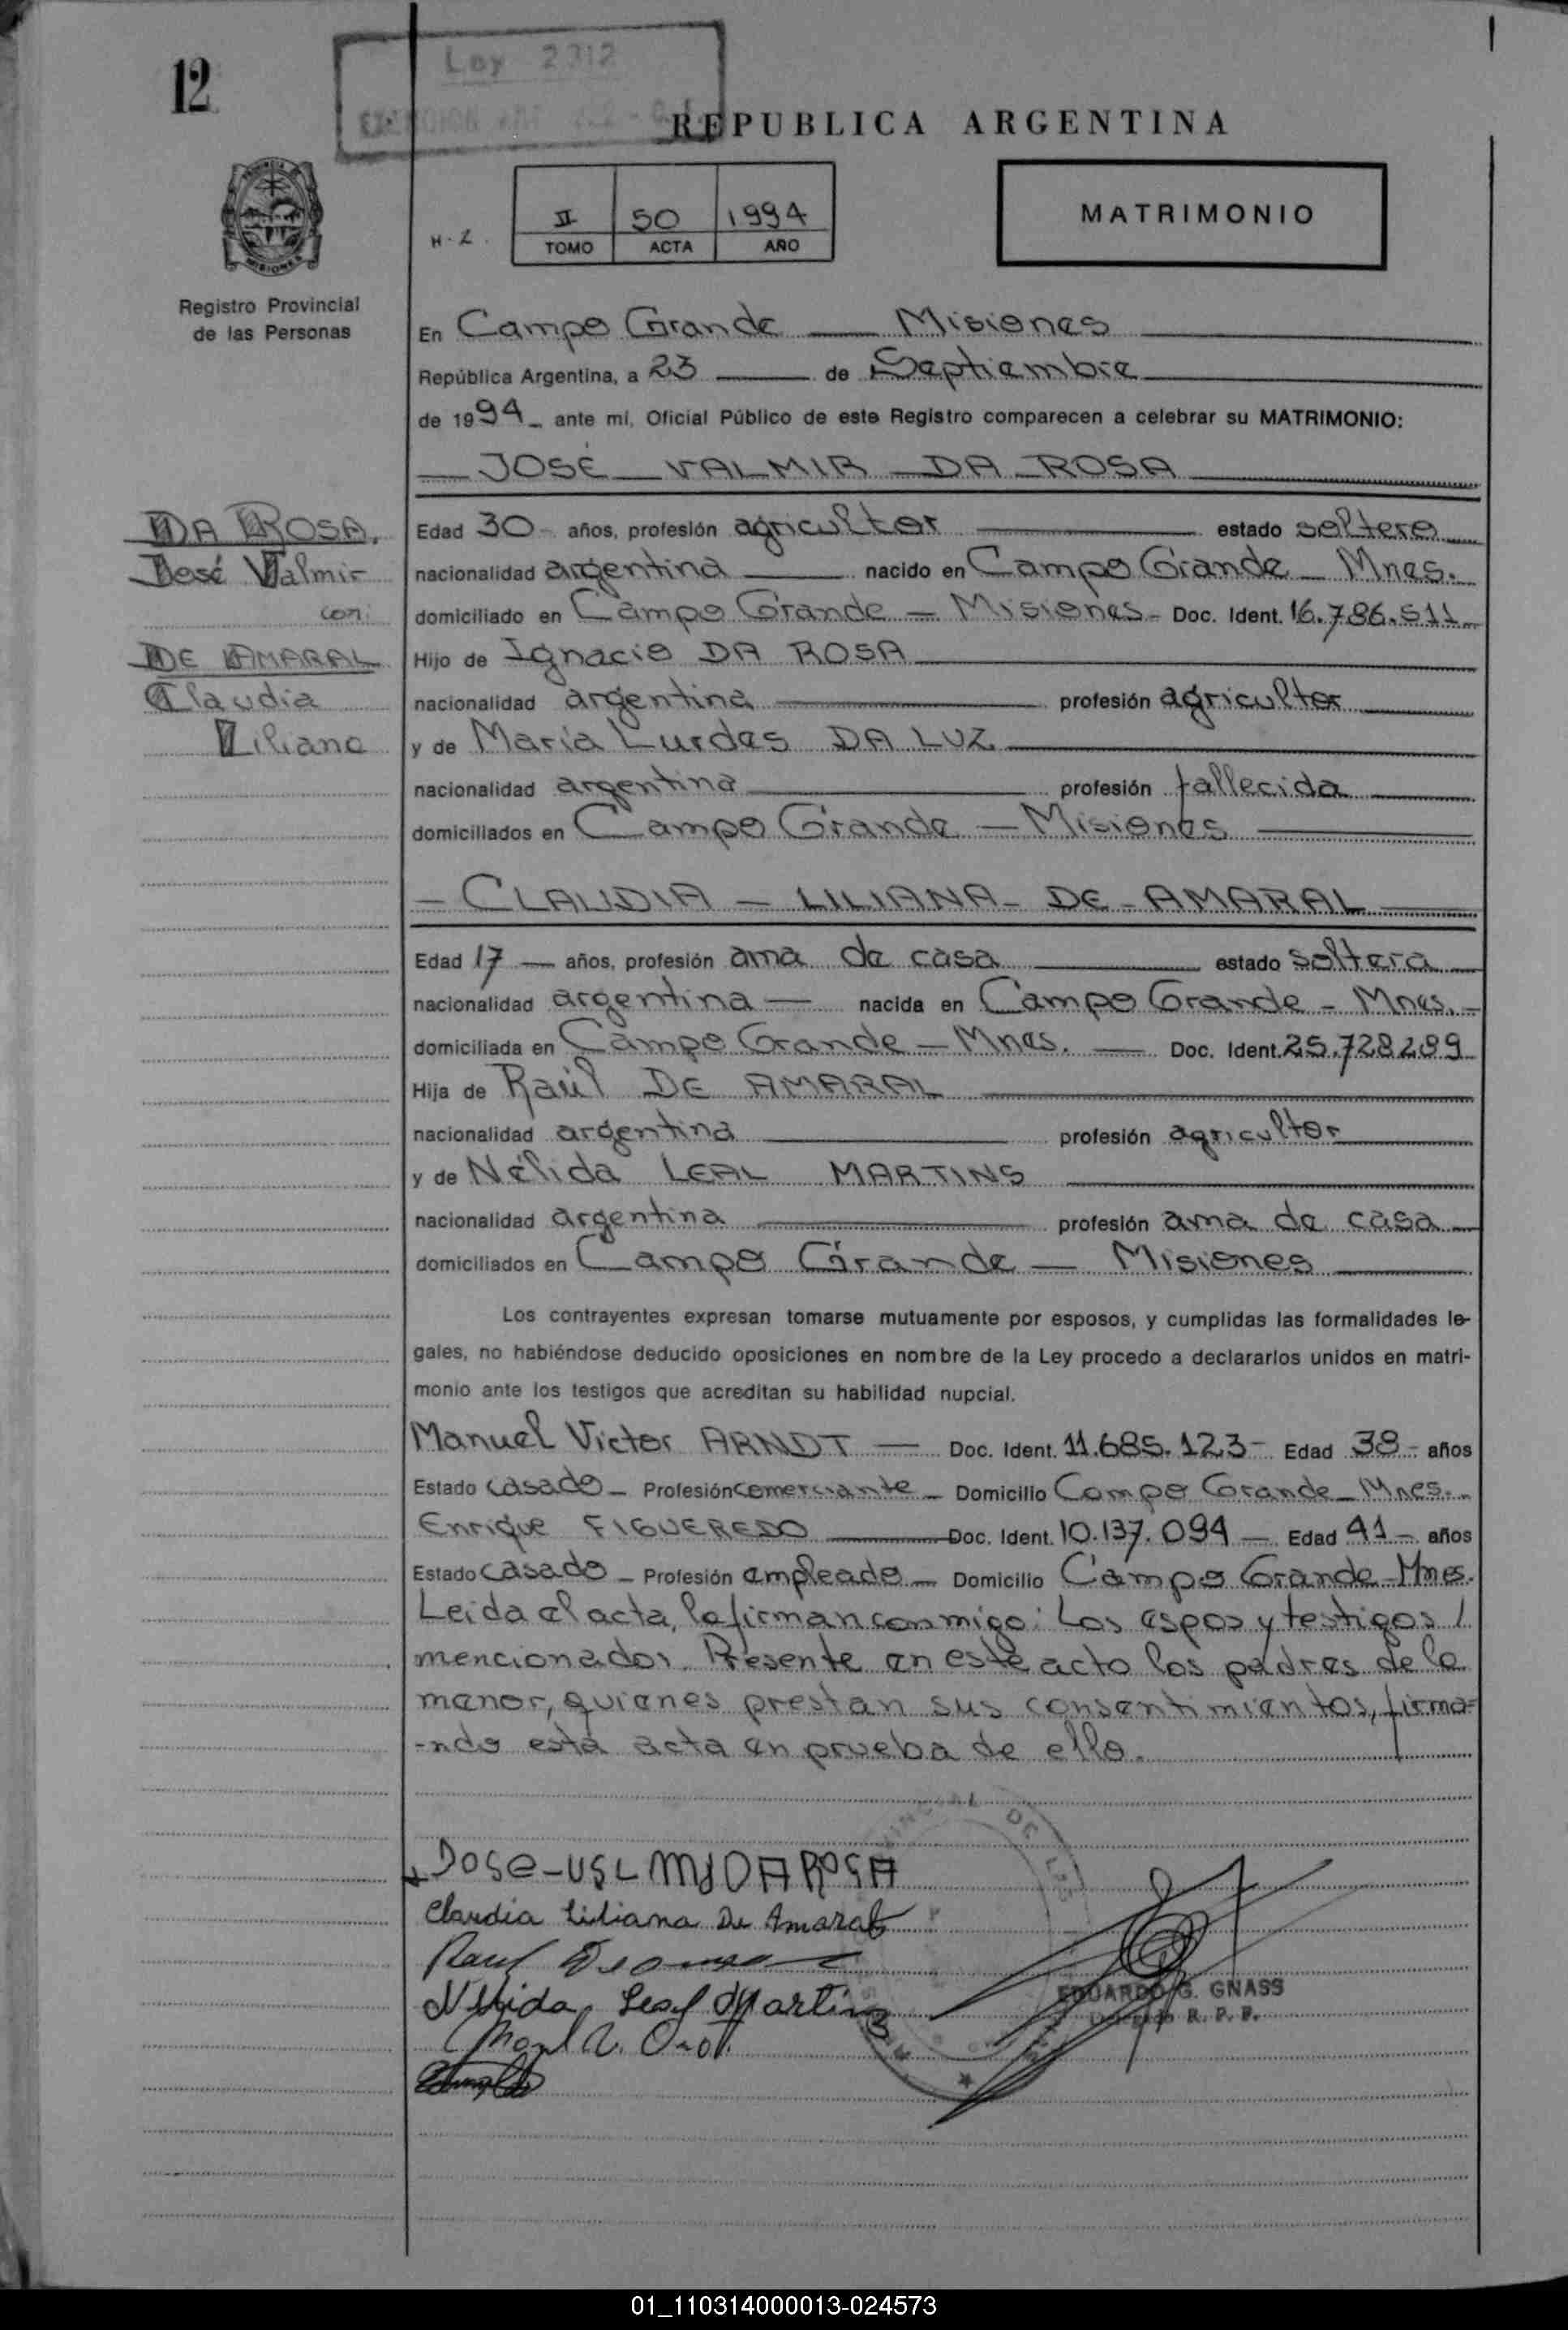 12
Ley 2312
REPUBLICA ARGENTINA
II 50 1994
TOMO ACTA AÑO
MATRIMONIO
Registro Provincial
de las Personas
En Campo Grande — Misiones
República Argentina, a 23 — de Septiembre
de 1994 ante mí, Oficial Público de este Registro comparecen a celebrar su MATRIMONIO:
— JOSÉ — VALMIR — DA — ROSA
DA ROSA,
José Valmir
con:
DE AMARAL
Claudia
Liliana
Edad 30 años, profesión agricultor — estado soltero
nacionalidad argentina — nacido en Campo Grande — Mnes.
domiciliado en Campo Grande — Misiones - Doc. Ident. 16.786.511
Hijo de Ignacio DA ROSA
nacionalidad argentina — profesión agricultor
y de María Lurdes DA LUZ
nacionalidad argentina — profesión fallecida
domiciliados en Campo Grande — Misiones
— CLAUDIA — LILIANA — DE — AMARAL
Edad 17 — años, profesión ama de casa — estado soltera
nacionalidad argentina — nacida en Campo Grande — Mnes.
domiciliada en Campo Grande — Mnes. — Doc. Ident. 25.728.289
Hija de Raúl DE AMARAL
nacionalidad argentina — profesión agricultor
y de Nélida LEAL MARTINS
nacionalidad argentina — profesión ama de casa
domiciliados en Campo Grande — Misiones
Los contrayentes expresan tomarse mutuamente por esposos, y cumplidas las formalidades le-
gales, no habiéndose deducido oposiciones en nombre de la Ley procedo a declararlos unidos en matri-
monio ante los testigos que acreditan su habilidad nupcial.
Manuel Victor ARNDT — Doc. Ident. 11.685.123 - Edad 38 - años
Estado casado - Profesión comerciante - Domicilio Campo Grande - Mnes.
Enrique FIGUEREDO — Doc. Ident. 10.137.094 — Edad 41 - años
Estado casado - Profesión empleado - Domicilio Campo Grande - Mnes.
Leída el acta, la firman conmigo: Los espos y testigos /
mencionados. Presente en este acto los padres de la
menor, quienes prestan sus consentimientos, firma-
-ndo esta acta en prueba de ello.
Claudia Liliana De Amaral
Nélida Leal Martins
EDUARDO G. GNASS
R. P. P.
01_110314000013-024573